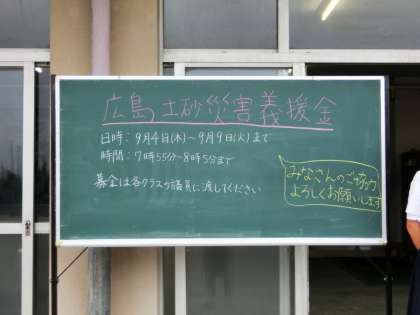 広島土砂災害義援金
日時：9月4日(木)～9月9日(火)まで
時間：7時55分～8時5分まで
募金は各クラスの議員に渡してください
みなさんのご協力
よろしくお願いします